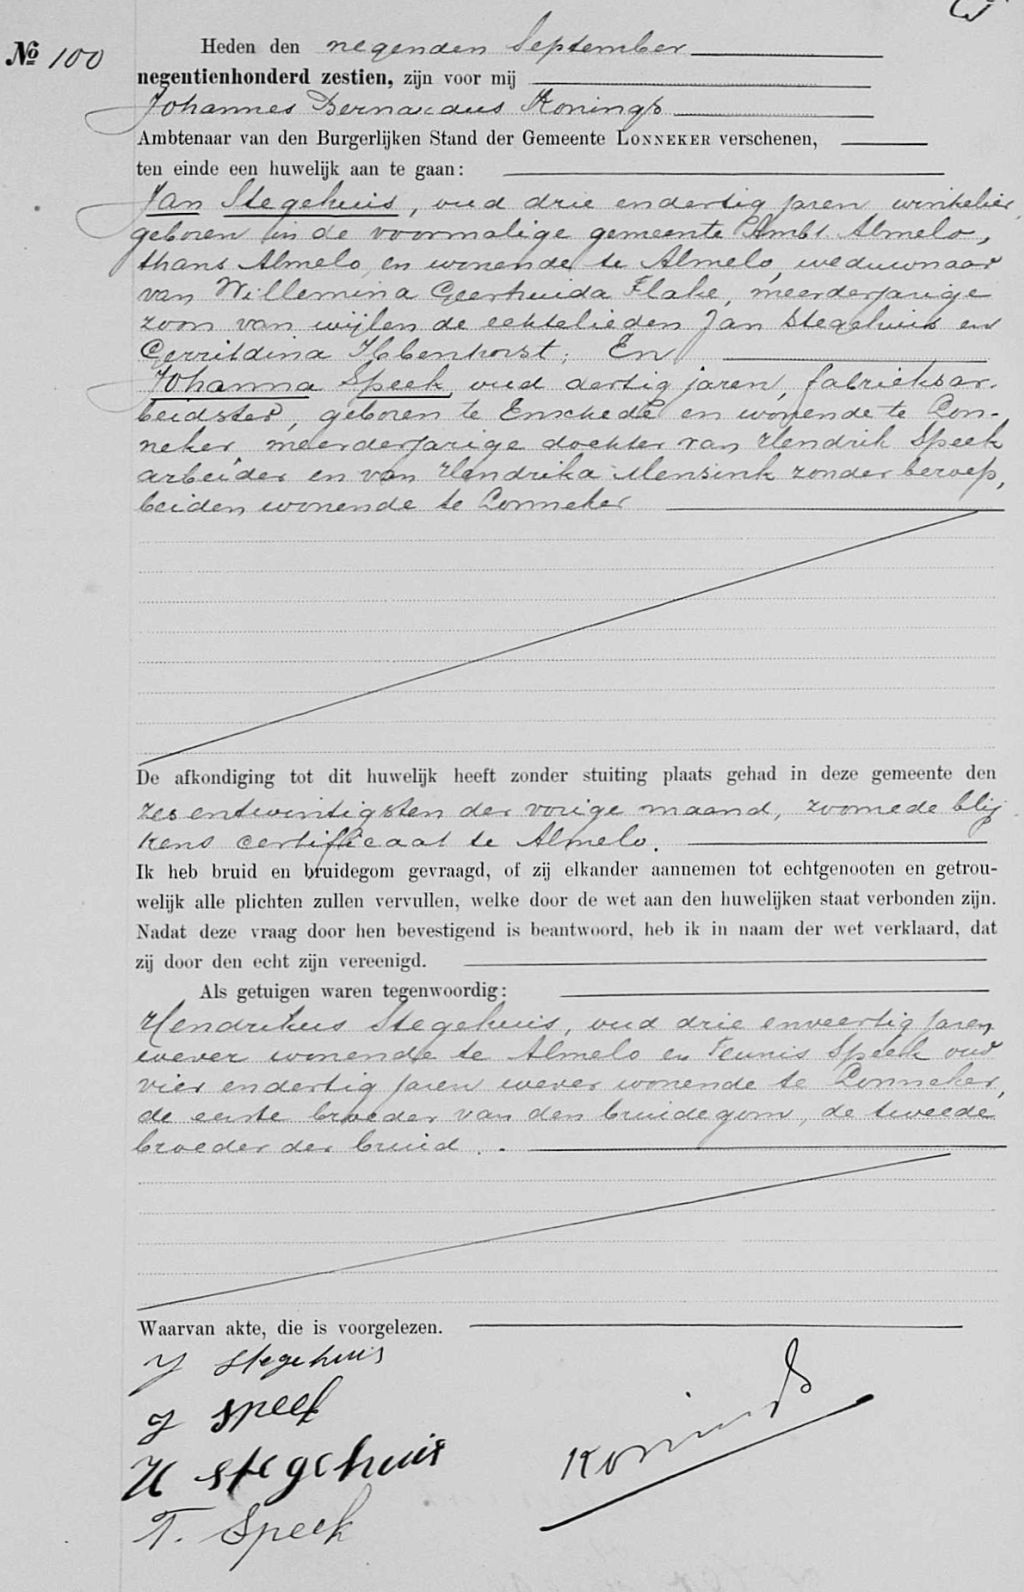 No 100
Heden den negenden September
negentienhonderd zestien, zijn voor mij
Johannes Bernardus Konings
Ambtenaar van den Burgerlijken Stand der Gemeente LONNEKER verschenen,
ten einde een huwelijk aan te gaan:
Jan Stegehuis, oud drie endertig jaren winkelier,
geboren in de voormalige gemeente Ambt Almelo,
thans Almelo, en wonende te Almelo, weduwnaar
van Willemina Geerhuida Flake, meerderjarige
zoon van wijlen de echtelieden Jan Stegehuis en
Gerritdina Ibbenhorst; En
Johanna Speek, oud dertig jaren, fabrieksar-
beidster, geboren te Enschede en wonende te Lon-
neker, meerderjarige dochter van Hendrik Speek
arbeider en van Hendrika Mensink zonder beroep,
beiden wonende te Lonneker
De afkondiging tot dit huwelijk heeft zonder stuiting plaats gehad in deze gemeente den
zes entwintigsten der vorige maand, zoomede blij
kens certificaat te Almelo.
Ik heb bruid en bruidegom gevraagd, of zij elkander aannemen tot echtgenooten en getrou-
welijk alle plichten zullen vervullen, welke door de wet aan den huwelijken staat verbonden zijn.
Nadat deze vraag door hen bevestigend is beantwoord, heb ik in naam der wet verklaard, dat
zij door den echt zijn vereenigd.
Als getuigen waren tegenwoordig:
Hendrikus Stegehuis, oud drie enveertig jaren,
wever wonende te Almelo en Teunis Speek oud
vier endertig jaren wever wonende te Lonneker,
de eerste broeder van den bruidegom, de tweede
broeder der bruid.
Waarvan akte, die is voorgelezen.
J Stegehuis
J Speek
H Stegehuis
T. Speek
Konings